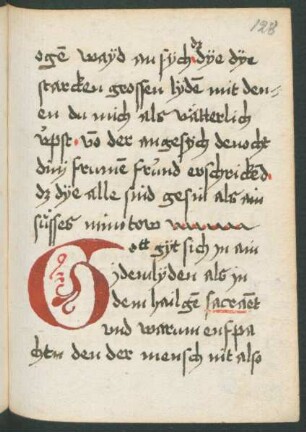 128
ogē wayd an sÿch dz dÿe dÿe
starcken grossen lyden mit den-
en du mich als vätterlich
v̈pst · vō der angesych dennocht
dinj frumē frund erschrickēd ·
dz dÿe alle sind gesin als ain
süsses mintow
Gott gyt sich jn ain
jdem lyden als jn
dem hailgē sacramēt
vnd warum enspa
chtu den der mensch nit also